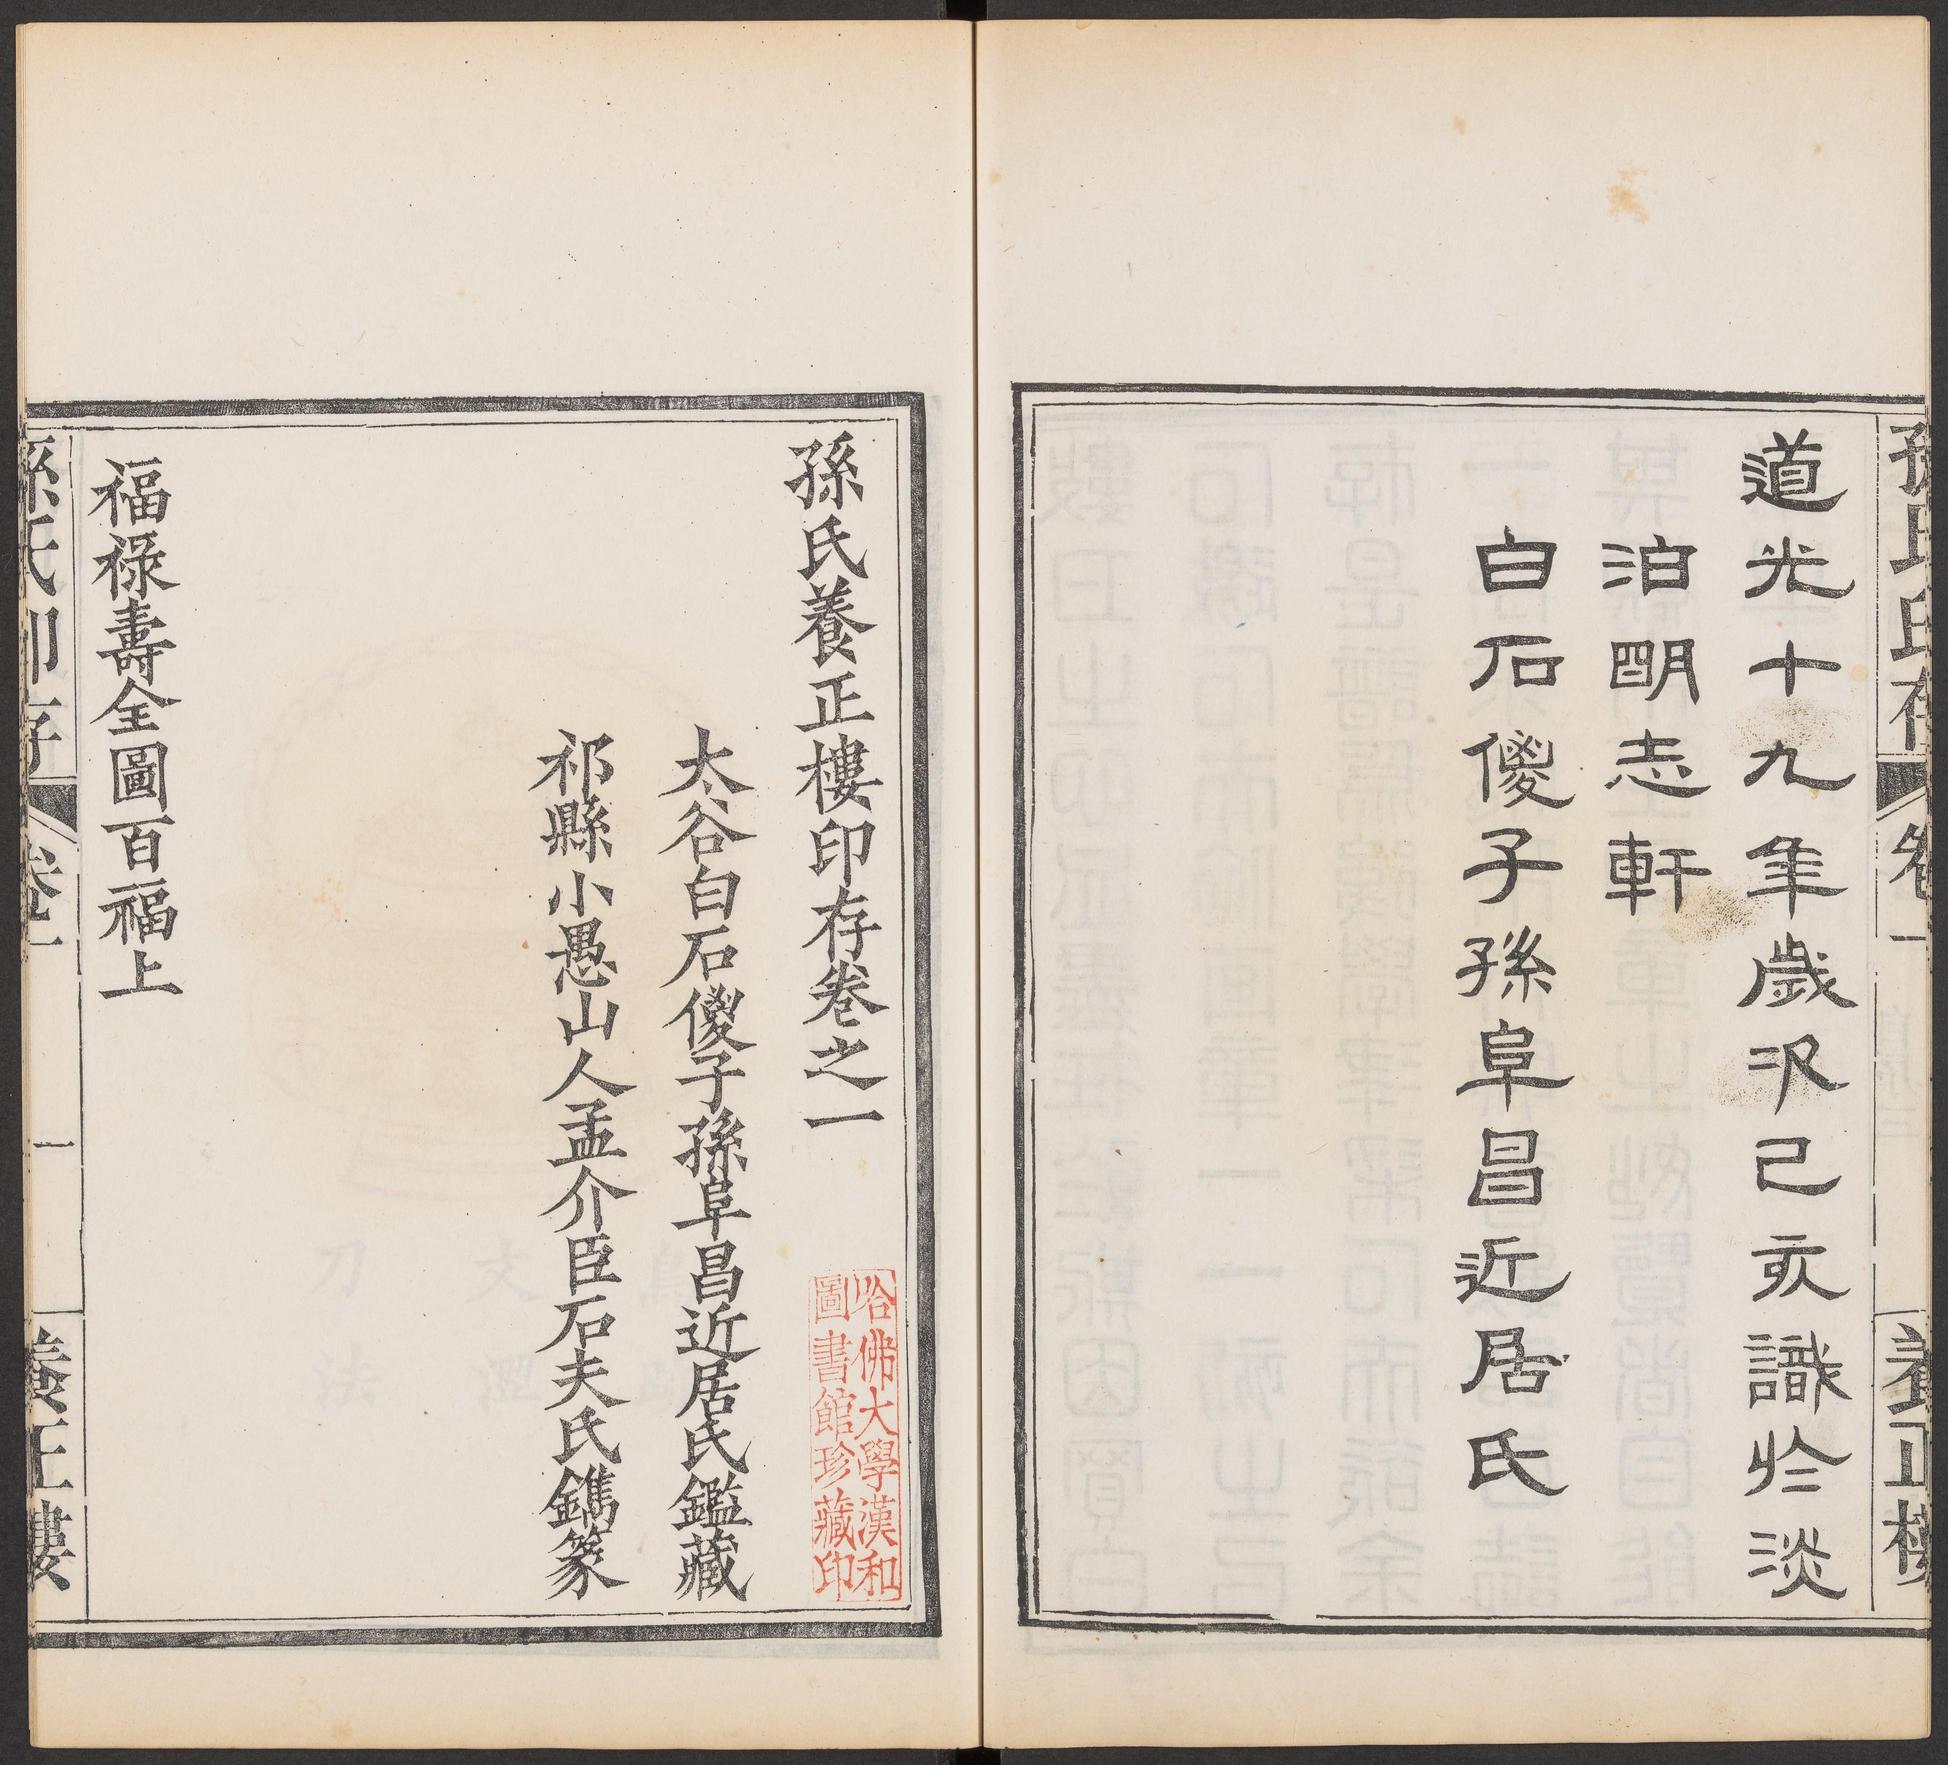 道光十九年歲次己亥識於淡
泊明志軒
白石傻子孫阜昌近居氏
孫氏印存
卷一
養正樓
孫氏養正樓印存卷之一
太谷白石傻子孫阜昌近居氏鑑藏
祁縣小愚山人孟介臣石夫氏鐫篆
福祿壽全圖百福上
哈佛大學漢和
圖書館珍藏印
孫氏印存
卷一
一
養正樓